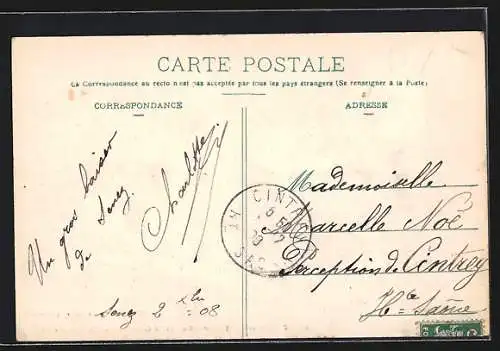 CARTE POSTALE
La Correspondance au recto n'est pas acceptée par tous les pays étrangers (Se renseigner à la Poste)
CORRESPONDANCE
ADRESSE
Un gros baiser
de
Charlotte
2 08
CINT
Mademoiselle
Marcelle Noë
Perception de Cintrey
Hte Saône